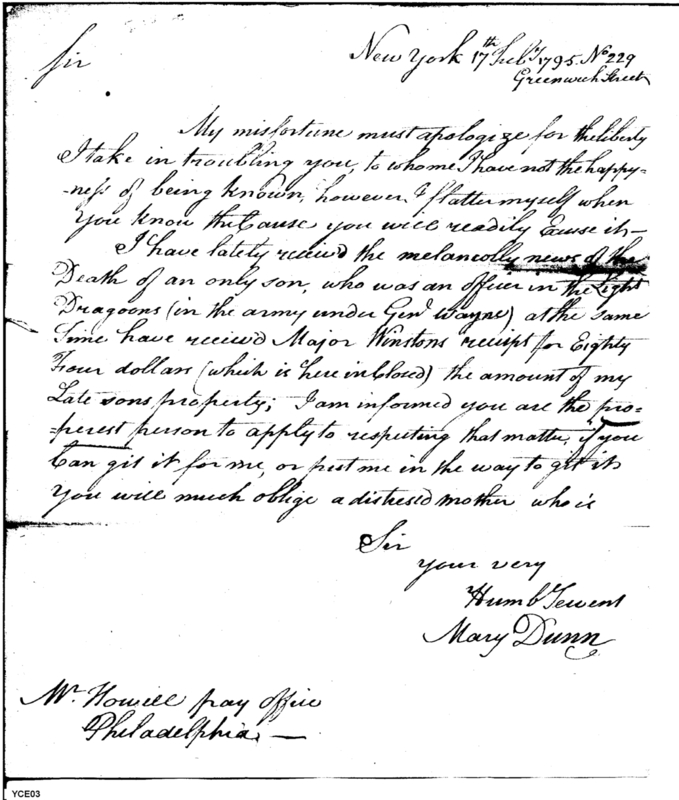 Sir
New York 17th Feby 1795. No 229
Greenwich Street
My misfortune must apologize for the liberty
I take in troubling you, to whome I have not the happy=
=ness of being known, however I flatter myself when
you know the Cause you will readily Excuse it—
I have lately receivd the melancolly news of the
Death of an only son, who was an officer in the Light
Dragoons (in the army under Genl Wayne) at the same
time have receivd Major Winstons receipt for Eighty
Four dollars (which is here in Closed) the amount of my
Late sons property; I am informed you are the pro=
=perest person to apply to respecting that matter, if you
Can git it for me, or put me in the way to git it
you will much oblige a distresed mother who is
Sir
your very
Humb Servent
Mary Dunn
Mr. Howell pay office
Philadelphia —
YCE03